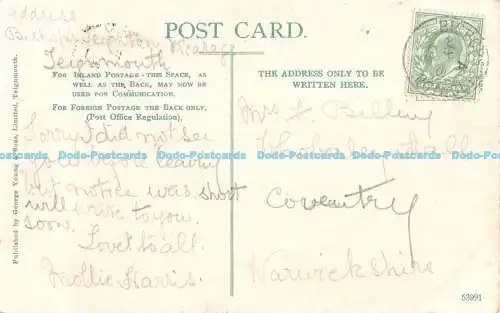 address
POST CARD.
Teignmouth
FOR INLAND POSTAGE-THIS SPACE, AS
WELL AS THE BACK, MAY NOW BE
USED FOR COMMUNICATION.
FOR FOREIGN POSTAGE THE BACK ONLY,
(Post Office Regulation).
THE ADDRESS ONLY TO BE
WRITTEN HERE.
Sorry I did not see
you before leaving
but notice was short
will write to you
soon.
Love to all.
Mollie Harris.
Mrs
Coventry
Warwickshire
Published by George Young & Sons, Limited, Teignmouth.
53991
Dodo-Postcards Dodo-Postcards Dodo-Postcards Dodo-Postcards Dodo-Postcards Dodo-Postcards